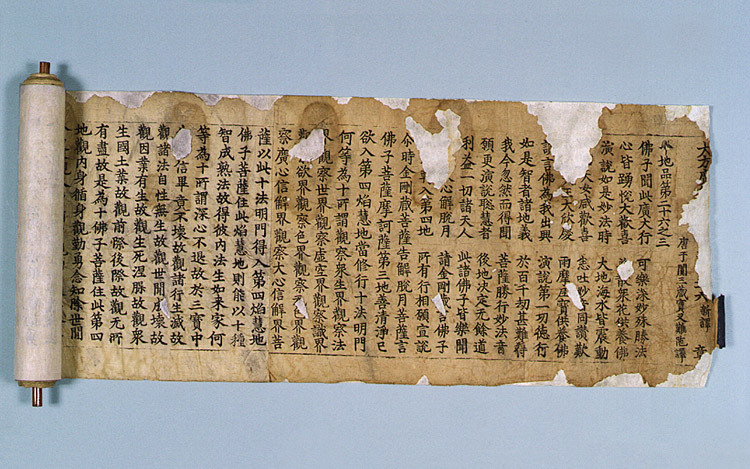 大方 六 新譯 章
唐于闐三藏實叉難陀譯
地品第二十六之三
佛子聞此廣大行 可樂深妙殊勝法
心皆踴悅大歡喜 散眾花供養佛
演說如是妙法時 大地海水皆震動
天女咸歡喜 悉吐妙音同讚歎
王大欣慶 雨摩尼寶供養佛
言佛為我出興 演說第一功德行
如是智者諸地義 於百千劫甚難得
我今忽然而得聞 菩薩勝行妙法音
願更演說聰慧者 後地決定無餘道
利益一切諸天人 此諸佛子皆樂聞
心解脫月 請金剛藏言佛子
入第四地 所有行相願宣說
尒時金剛藏菩薩告解脫月菩薩言
佛子菩薩摩訶薩第三地善清淨已
欲入第四焰慧地當修行十法明門
何等為十所謂觀察眾生界觀察法
界觀察世界觀察虛空界觀察識界
觀察欲界觀察色界觀察無色界觀
察廣心信解界觀察大心信解界菩
薩以此十法明門得入第四焰慧地
佛子菩薩住此焰慧地則能以十種
智成熟法故得彼內法生如來家何
等為十所謂深心不退故於三寶中
信畢竟不壞故觀諸行生滅故
觀諸法自性無生故觀世間成壞故
觀因業有生故觀生死涅槃故觀眾
生國土業故觀前際後際故觀无所
有盡故是為十佛子菩薩住此第四
地觀內身循身觀勤勇念知除世間